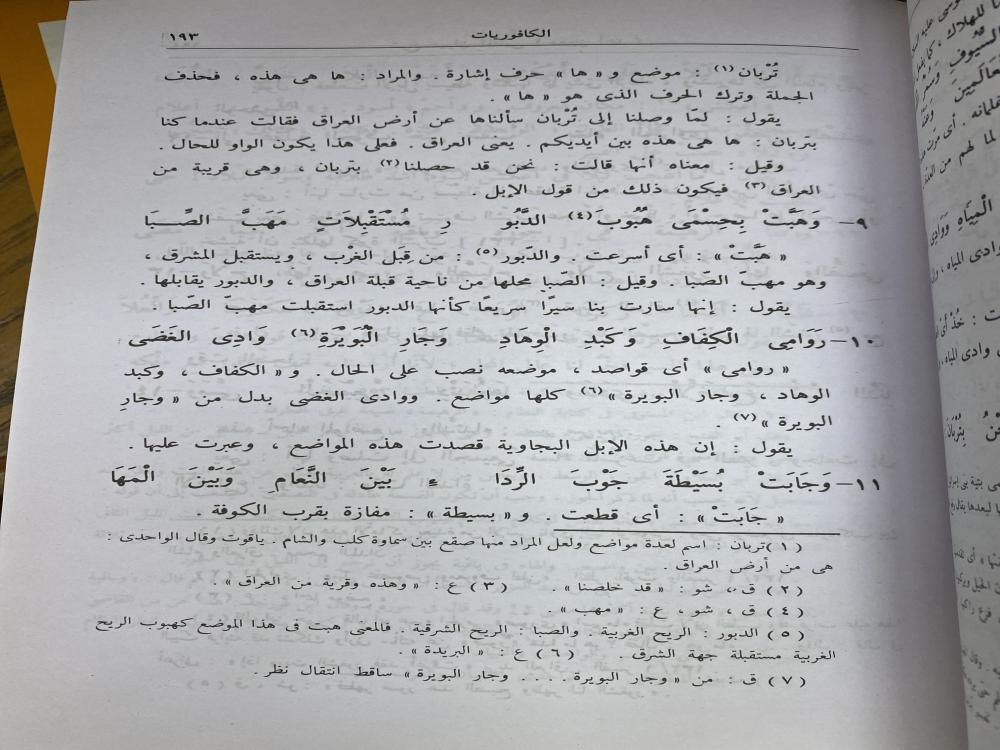 الكافوريات
١٩٣
تُرْبان(١) : موضع و « ها » حرف إشارة . والمراد : ها هى هذه ، فحذف
الجملة وترك الحرف الذى هو « ها » .
يقول : لمّا وصلنا إلى تُرْبان سألناها عن أرض العراق فقالت عندما كنا
بتربان : ها هى هذه بين أيديكم . يعنى العراق . فعلى هذا يكون الواو للحال .
وقيل : معناه أنها قالت : نحن قد حصلنا(٢) بتربان ، وهى قريبة من
العراق(٣) فيكون ذلك من قول الإبل .
٩– وَهَبَّتْ بِحِسْمَى هُبُوبَ(٤) الدَّبُو رِ مُسْتَقْبِلَاتٍ مَهَبَّ الصَّبَا
« هَبَّتْ » : أى أسرعت . والدّبور(٥) : من قِبَل الغرْب ، ويستقبل المشرق ،
وهو مهبّ الصّبا . وقيل : الصّبا محلها من ناحية قبلة العراق ، والدبور يقابلها .
يقول : إنها سارت بنا سيرًا سريعًا كأنها الدبور استقبلت مهبّ الصّبا .
١٠– رَوَامِى الْكِفَافِ وَكَبْدِ الْوِهَادِ وَجَارِ الْبُوَيْرَةِ(٦) وَادِى الغَضَى
« روامى » أى قواصد ، موضعه نصب على الحال . و « الكفاف ، وكبد
الوهاد ، وجار البويرة »(٦) كلها مواضع . ووادى الغضى بدل من « وجارِ
البويرة »(٧) .
يقول : إن هذه الإبل البجاوية قصدت هذه المواضع ، وعبرت عليها .
١١– وَجَابَتْ بُسَيْطَةَ جَوْبَ الرِّدَا ءِ بَيْنَ النَّعَامِ وَبَيْنَ الْمَهَا
« جَابَتْ » : أى قطعت . و « بسيطة » : مفازة بقرب الكوفة .
(١) تربان : اسم لعدة مواضع ولعل المراد منها صقع بين سماوة كلب والشام . ياقوت وقال الواحدى :
هى من أرض العراق .
(٢) ق ، شو : « قد خلصنا » . (٣) ع : « وهذه وقرية من العراق » .
(٤) ق ، شو ، ع : « مهب » .
(٥) الدبور : الريح الغربية . والصبا : الريح الشرقية . فالمعنى هبت فى هذا الموضع كهبوب الريح
الغربية مستقبلة جهة الشرق . (٦) ع : « البريدة » .
(٧) ق : من « وجار البويرة . . . . وجار البويرة » ساقط انتقال نظر .